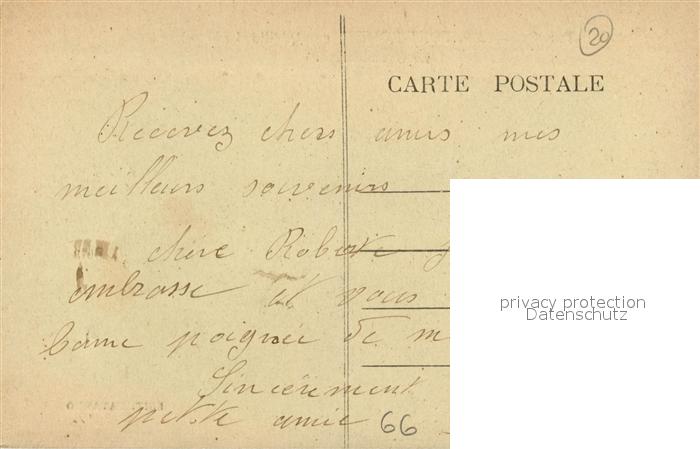 20
CARTE POSTALE
Recevez chers amis mes
meilleurs souvenirs
chère Roberte j
embrasse et vous
bonne poignée de m
Sincèrement
petite amie
66
privacy protection
Datenschutz